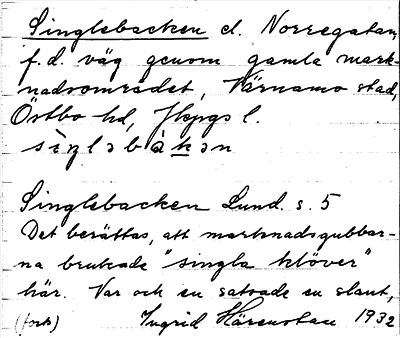 Singlebacken el. Norregatan,
f.d. väg genom gamla mark-
nadsområdet, Värnamo stad,
Östbo hd, Jkpgs l.
siŋləbàkən
Singlebacken Lund. s. 5
Det berättas, att marknadsgubbar-
na brukade "singla klöver"
här. Var och en satsade en slant,
(forts) Ingrid Härenstam 1932